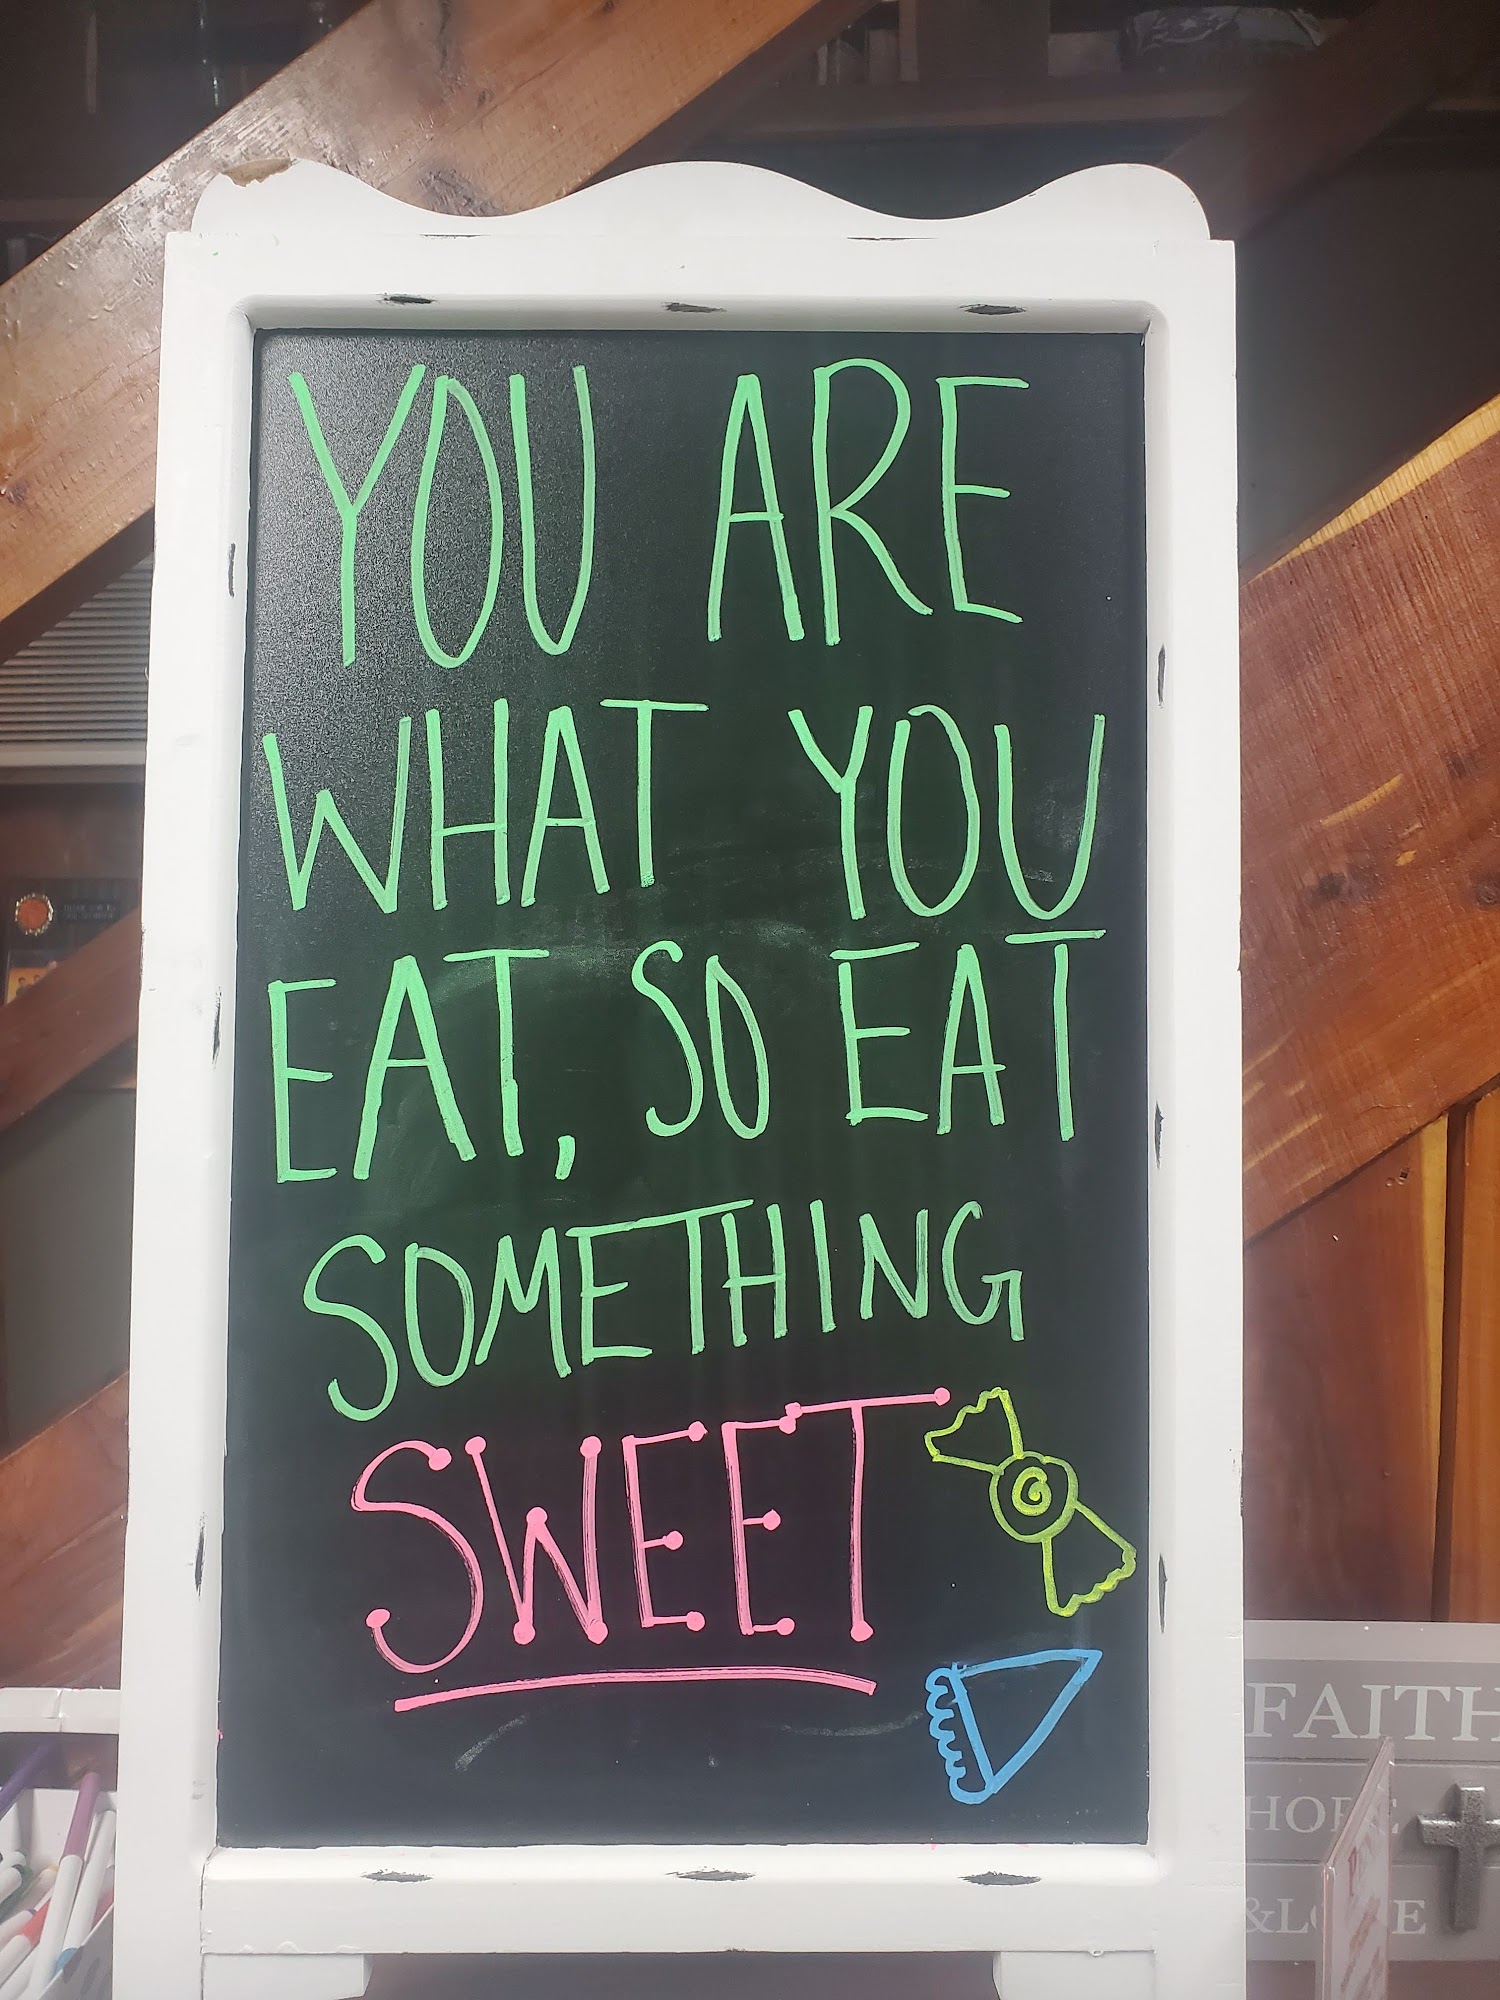 YOU ARE
WHAT YOU
EAT, SO EAT
SOMETHING
SWEET
FAITH
HOPE
&LOVE